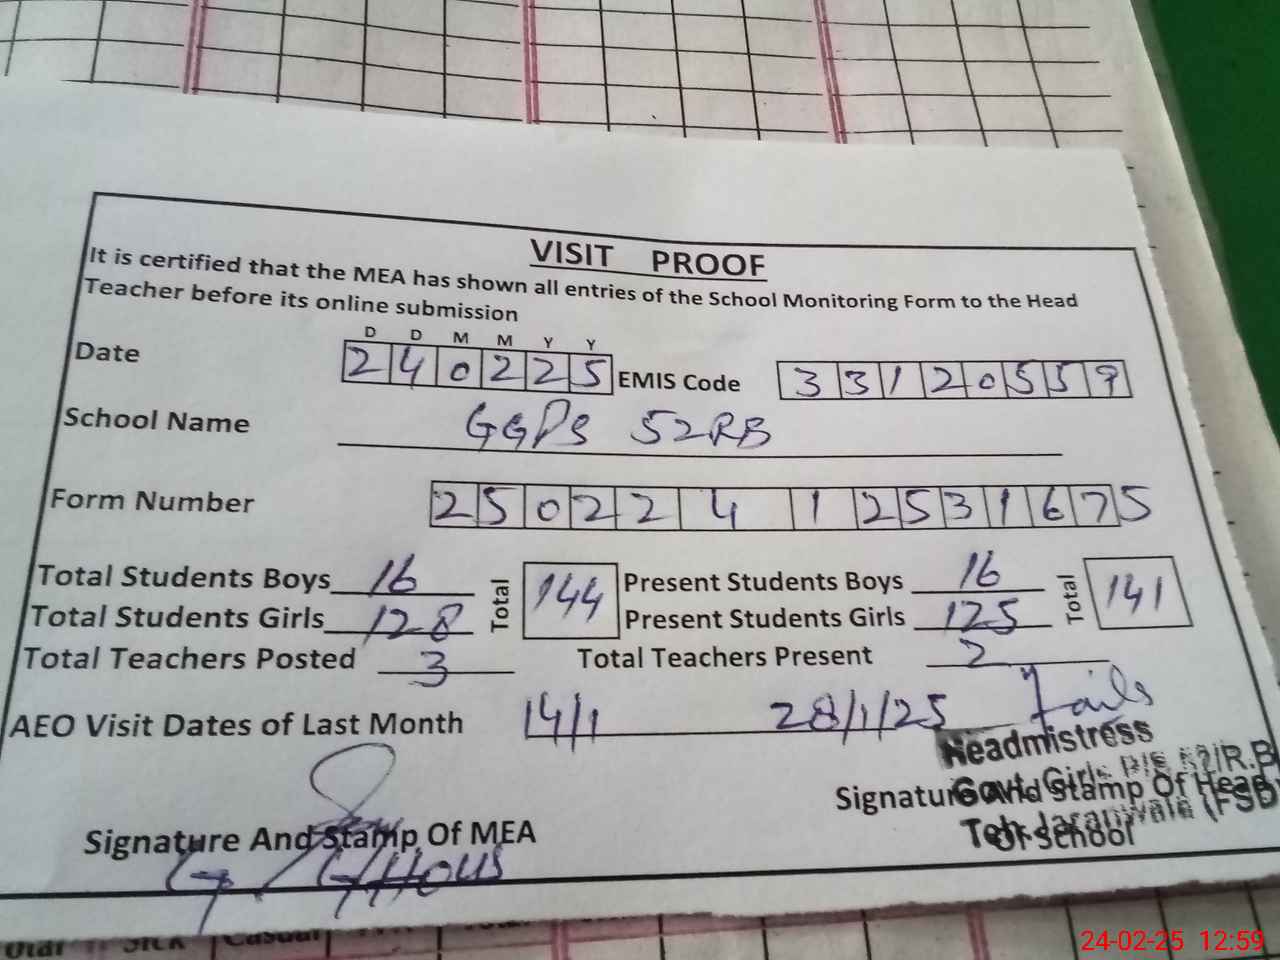 VISIT PROOF
It is certified that the MEA has shown all entries of the School Monitoring Form to the Head
Teacher before its online submission
D D M M Y Y
Date 2 4 0 2 2 5 EMIS Code 3 3 1 2 0 5 5 7
School Name GGPS 52RB
Form Number 2 5 0 2 2 4 1 2 5 3 1 6 7 5
Total Students Boys 16 Total 144 Present Students Boys 16 Total 141
Total Students Girls 128 Present Students Girls 125
Total Teachers Posted 3 Total Teachers Present 2
AEO Visit Dates of Last Month 14/1 28/1/25
Headmistress
Govt. Girls P/S 52/R.B
Signature And Stamp Of Head
Teh. Jaranwala (FSD)
Of School
Signature And Stamp Of MEA
Sick Casual
24-02-25 12:59